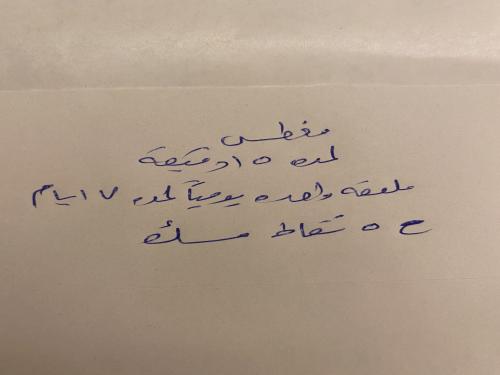 مغطس
لمده ١٥ دقيقة
ملعقه واحده يومياً لمده ٧ ايام
ع ٥ نقاط مسك